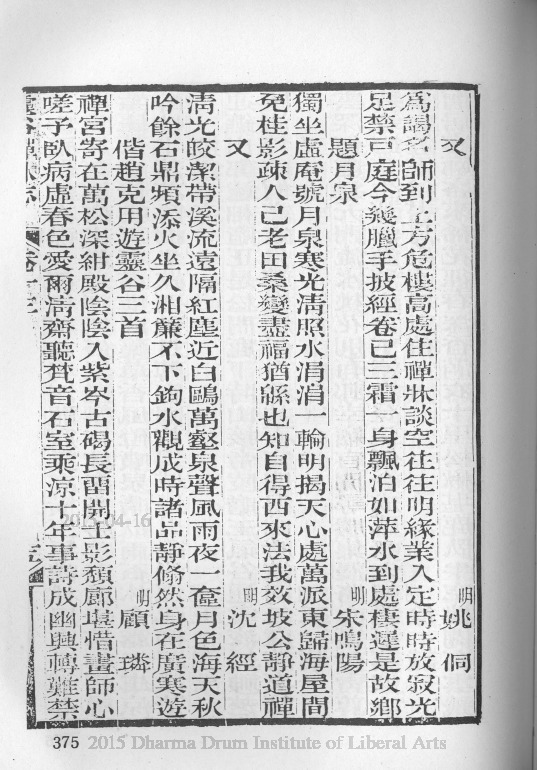 又 明 姚侗
爲謁名師到上方危樓高處住禪牀談空往往明緣業入定時時放寂光
足禁戸庭今幾臘手披經卷已三霜一身飄泊如萍水到處棲遲是故鄉
題月泉 明 朱鳴陽
獨坐虛庵號月泉寒光淸照水涓涓一輪明揭天心處萬派東歸海屋間
兔桂影疎人已老田桑變盡福猶緜也知自得西來法我效坡公靜道禪
又 明 沈經
淸光皎潔帶溪流遠隔紅塵近白鷗萬壑泉聲風雨夜一奩月色海天秋
吟餘石鼎頻添火坐久湘簾不下鉤水觀成時諸品靜翛然身在廣寒遊
偕趙克用遊靈谷三首 明 顧璘
禪宮寄在萬松深紺殿陰陰入紫岑古碣長留開士影頽廊堪惜畫師心
嗟予臥病虛春色愛爾淸齋聽梵音石室乘凉十年事詩成幽興轉難禁
靈谷禪林志 卷十三
2015-04-16
375 2015 Dharma Drum Institute of Liberal Arts